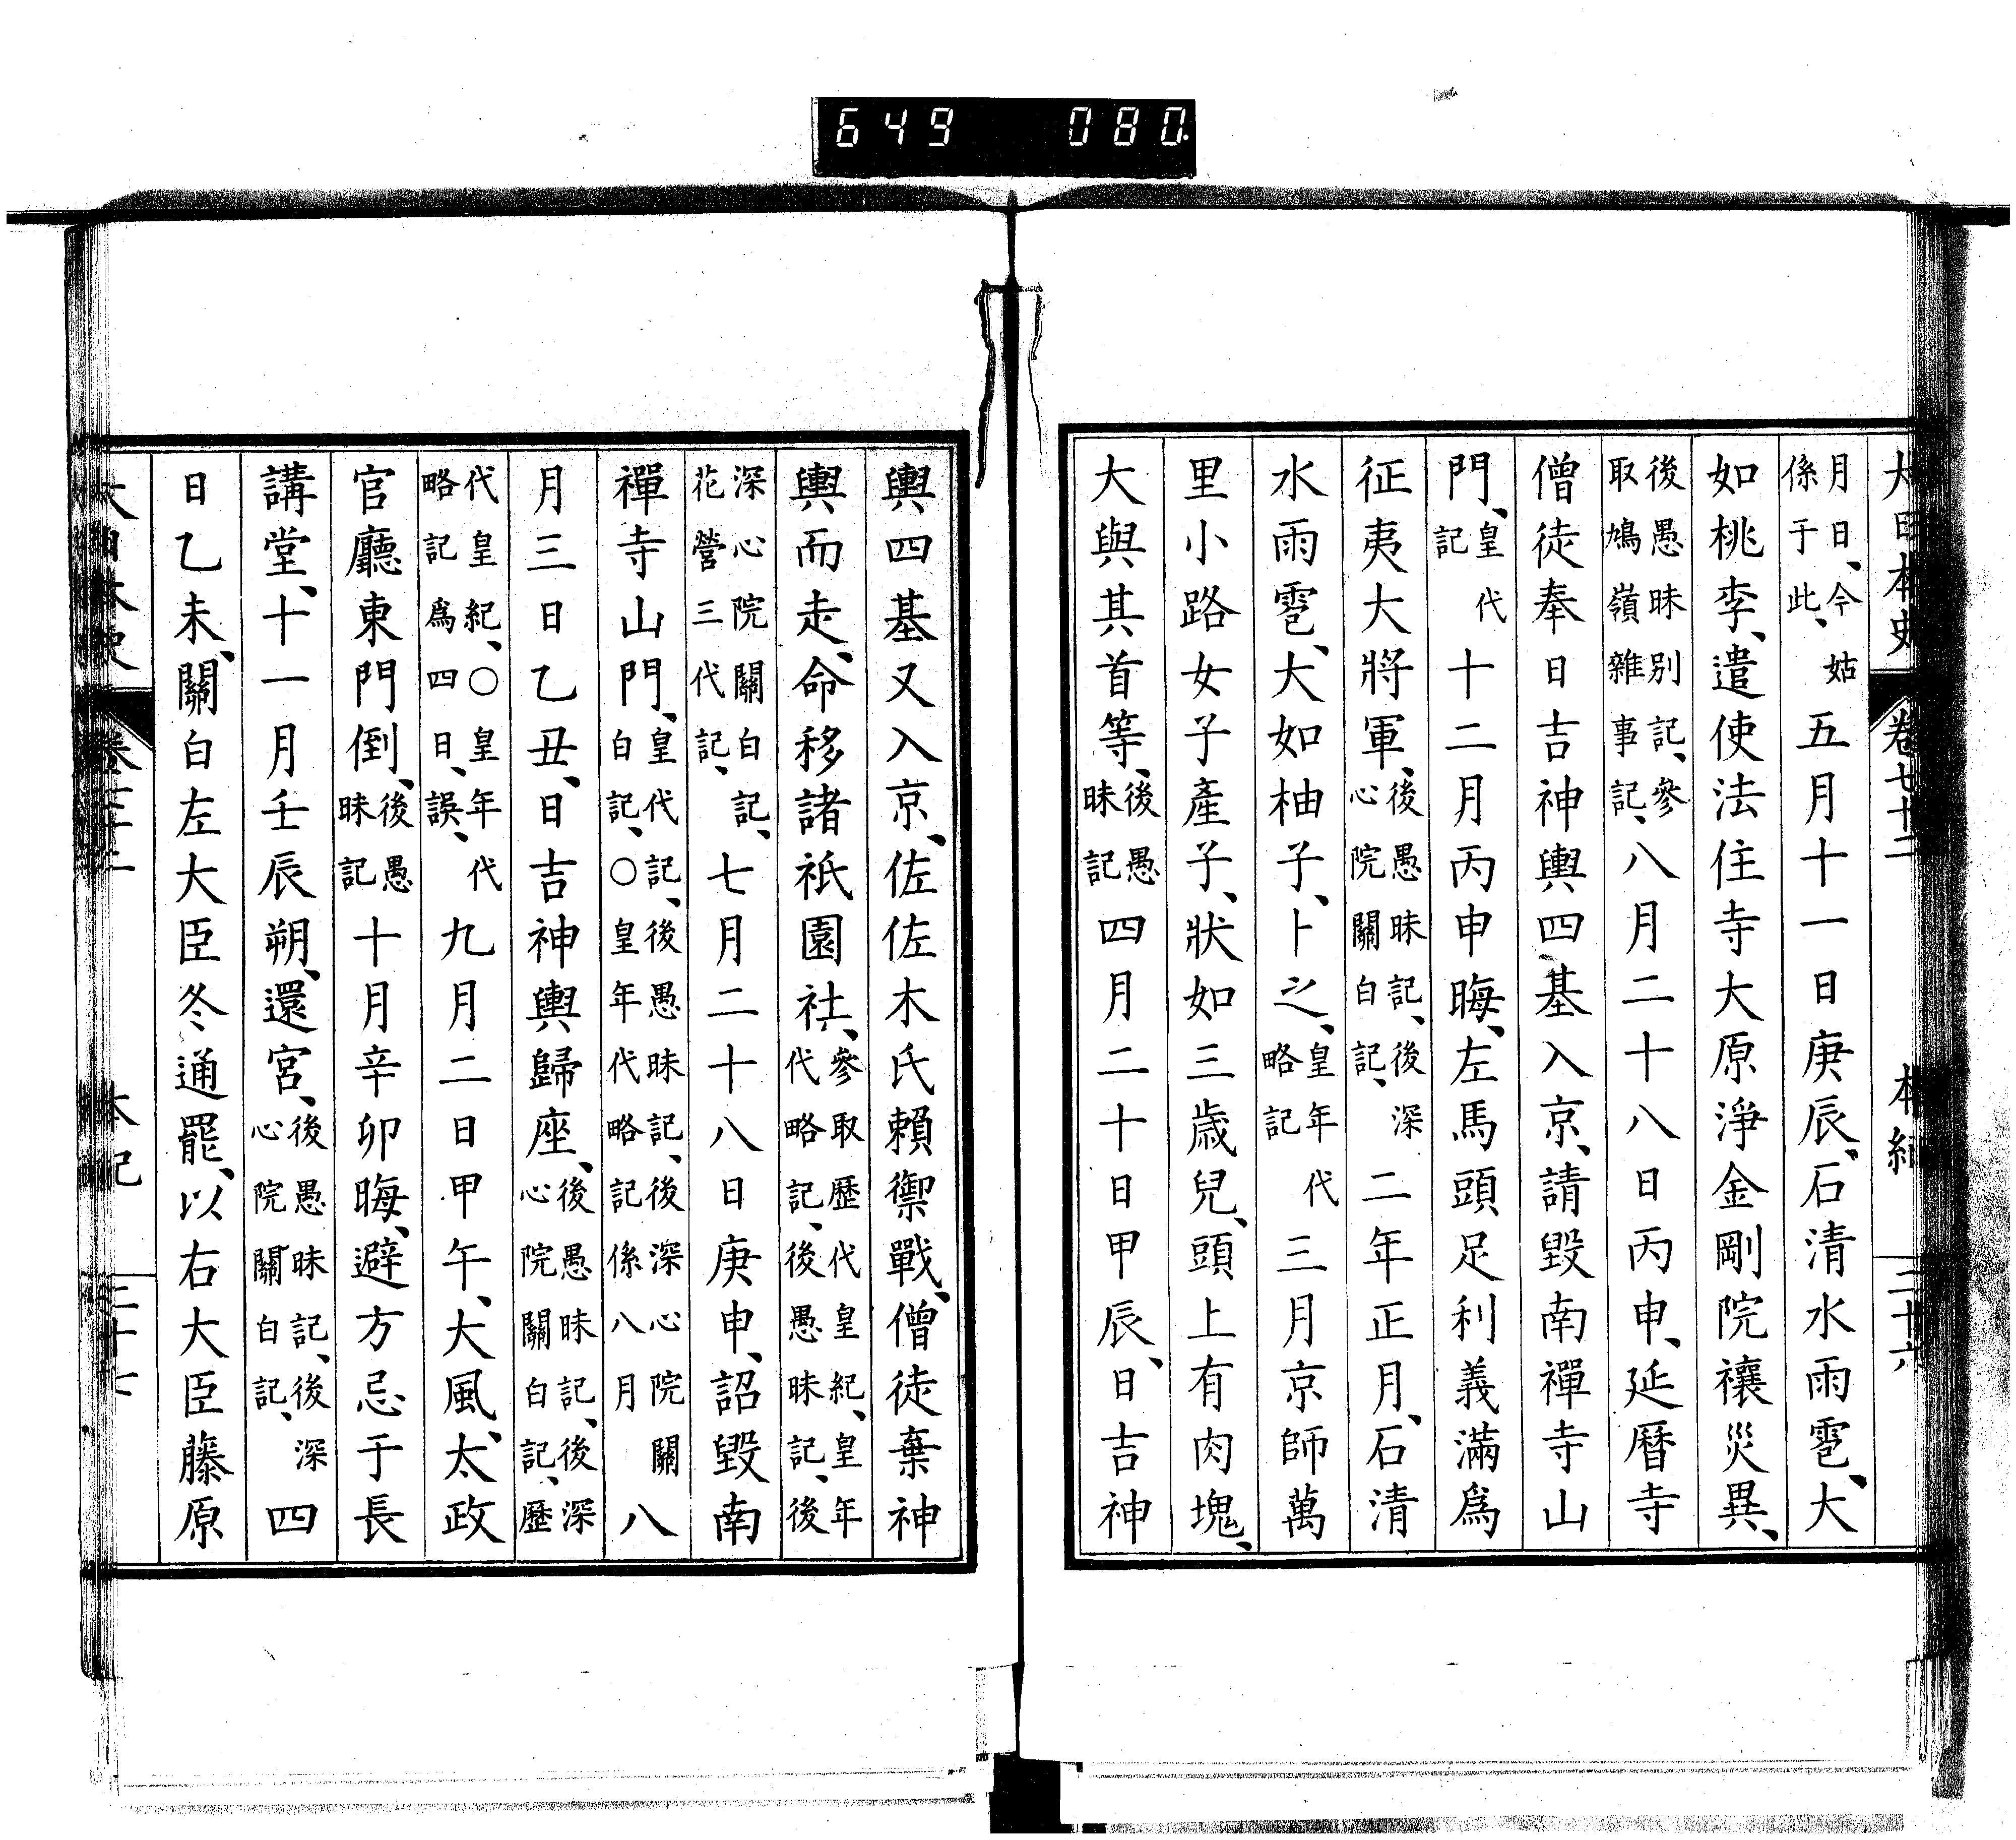 649 080
大日本史 卷七十二 本紀 三十六
月日、今姑係于此、五月十一日庚辰、石清水雨雹、大
如桃李、遣使法住寺大原淨金剛院禳災異、
後愚昧別記、參取鳩嶺雜事記、八月二十八日丙申、延曆寺
僧徒奉日吉神輿四基入京、請毀南禪寺山
門、皇代記十二月丙申晦、左馬頭足利義滿爲
征夷大將軍、後愚昧記、後深心院關白記、二年正月、石清
水雨雹、大如柚子、卜之、皇年代略記三月京師萬
里小路女子產子、狀如三歲兒、頭上有肉塊、
大與其首等、後愚昧記四月二十日甲辰、日吉神
輿四基又入京、佐佐木氏賴禦戰、僧徒棄神
輿而走、命移諸祇園社、參取歷代皇紀、皇年代略記、後愚昧記、後
深心院關白記、花營三代記、七月二十八日庚申、詔毀南
禪寺山門、皇代記、後愚昧記、後深心院關白記、○皇年代略記係八月八
月三日乙丑、日吉神輿歸座、後愚昧記、後深心院關白記、歷
代皇紀、○皇年代略記爲四日、誤、九月二日甲午、大風、太政
官廳東門倒、後愚昧記十月辛卯晦、避方忌于長
講堂、十一月壬辰朔、還宮、後愚昧記、後深心院關白記、四
日乙未、關白左大臣冬通罷、以右大臣藤原
本紀